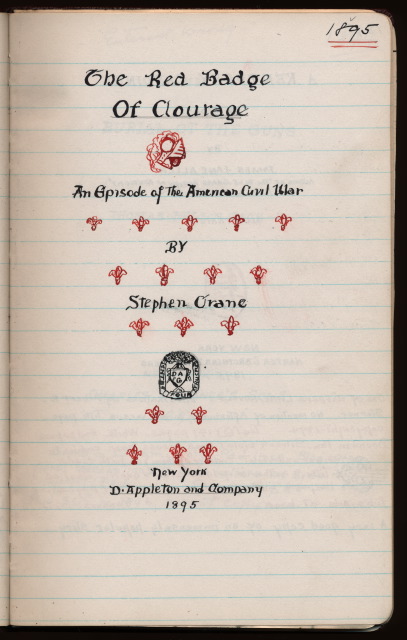 1895
The Red Badge
Of Courage
An Episode of The American Civil War
BY
Stephen Crane
New York
D. Appleton and Company
1895